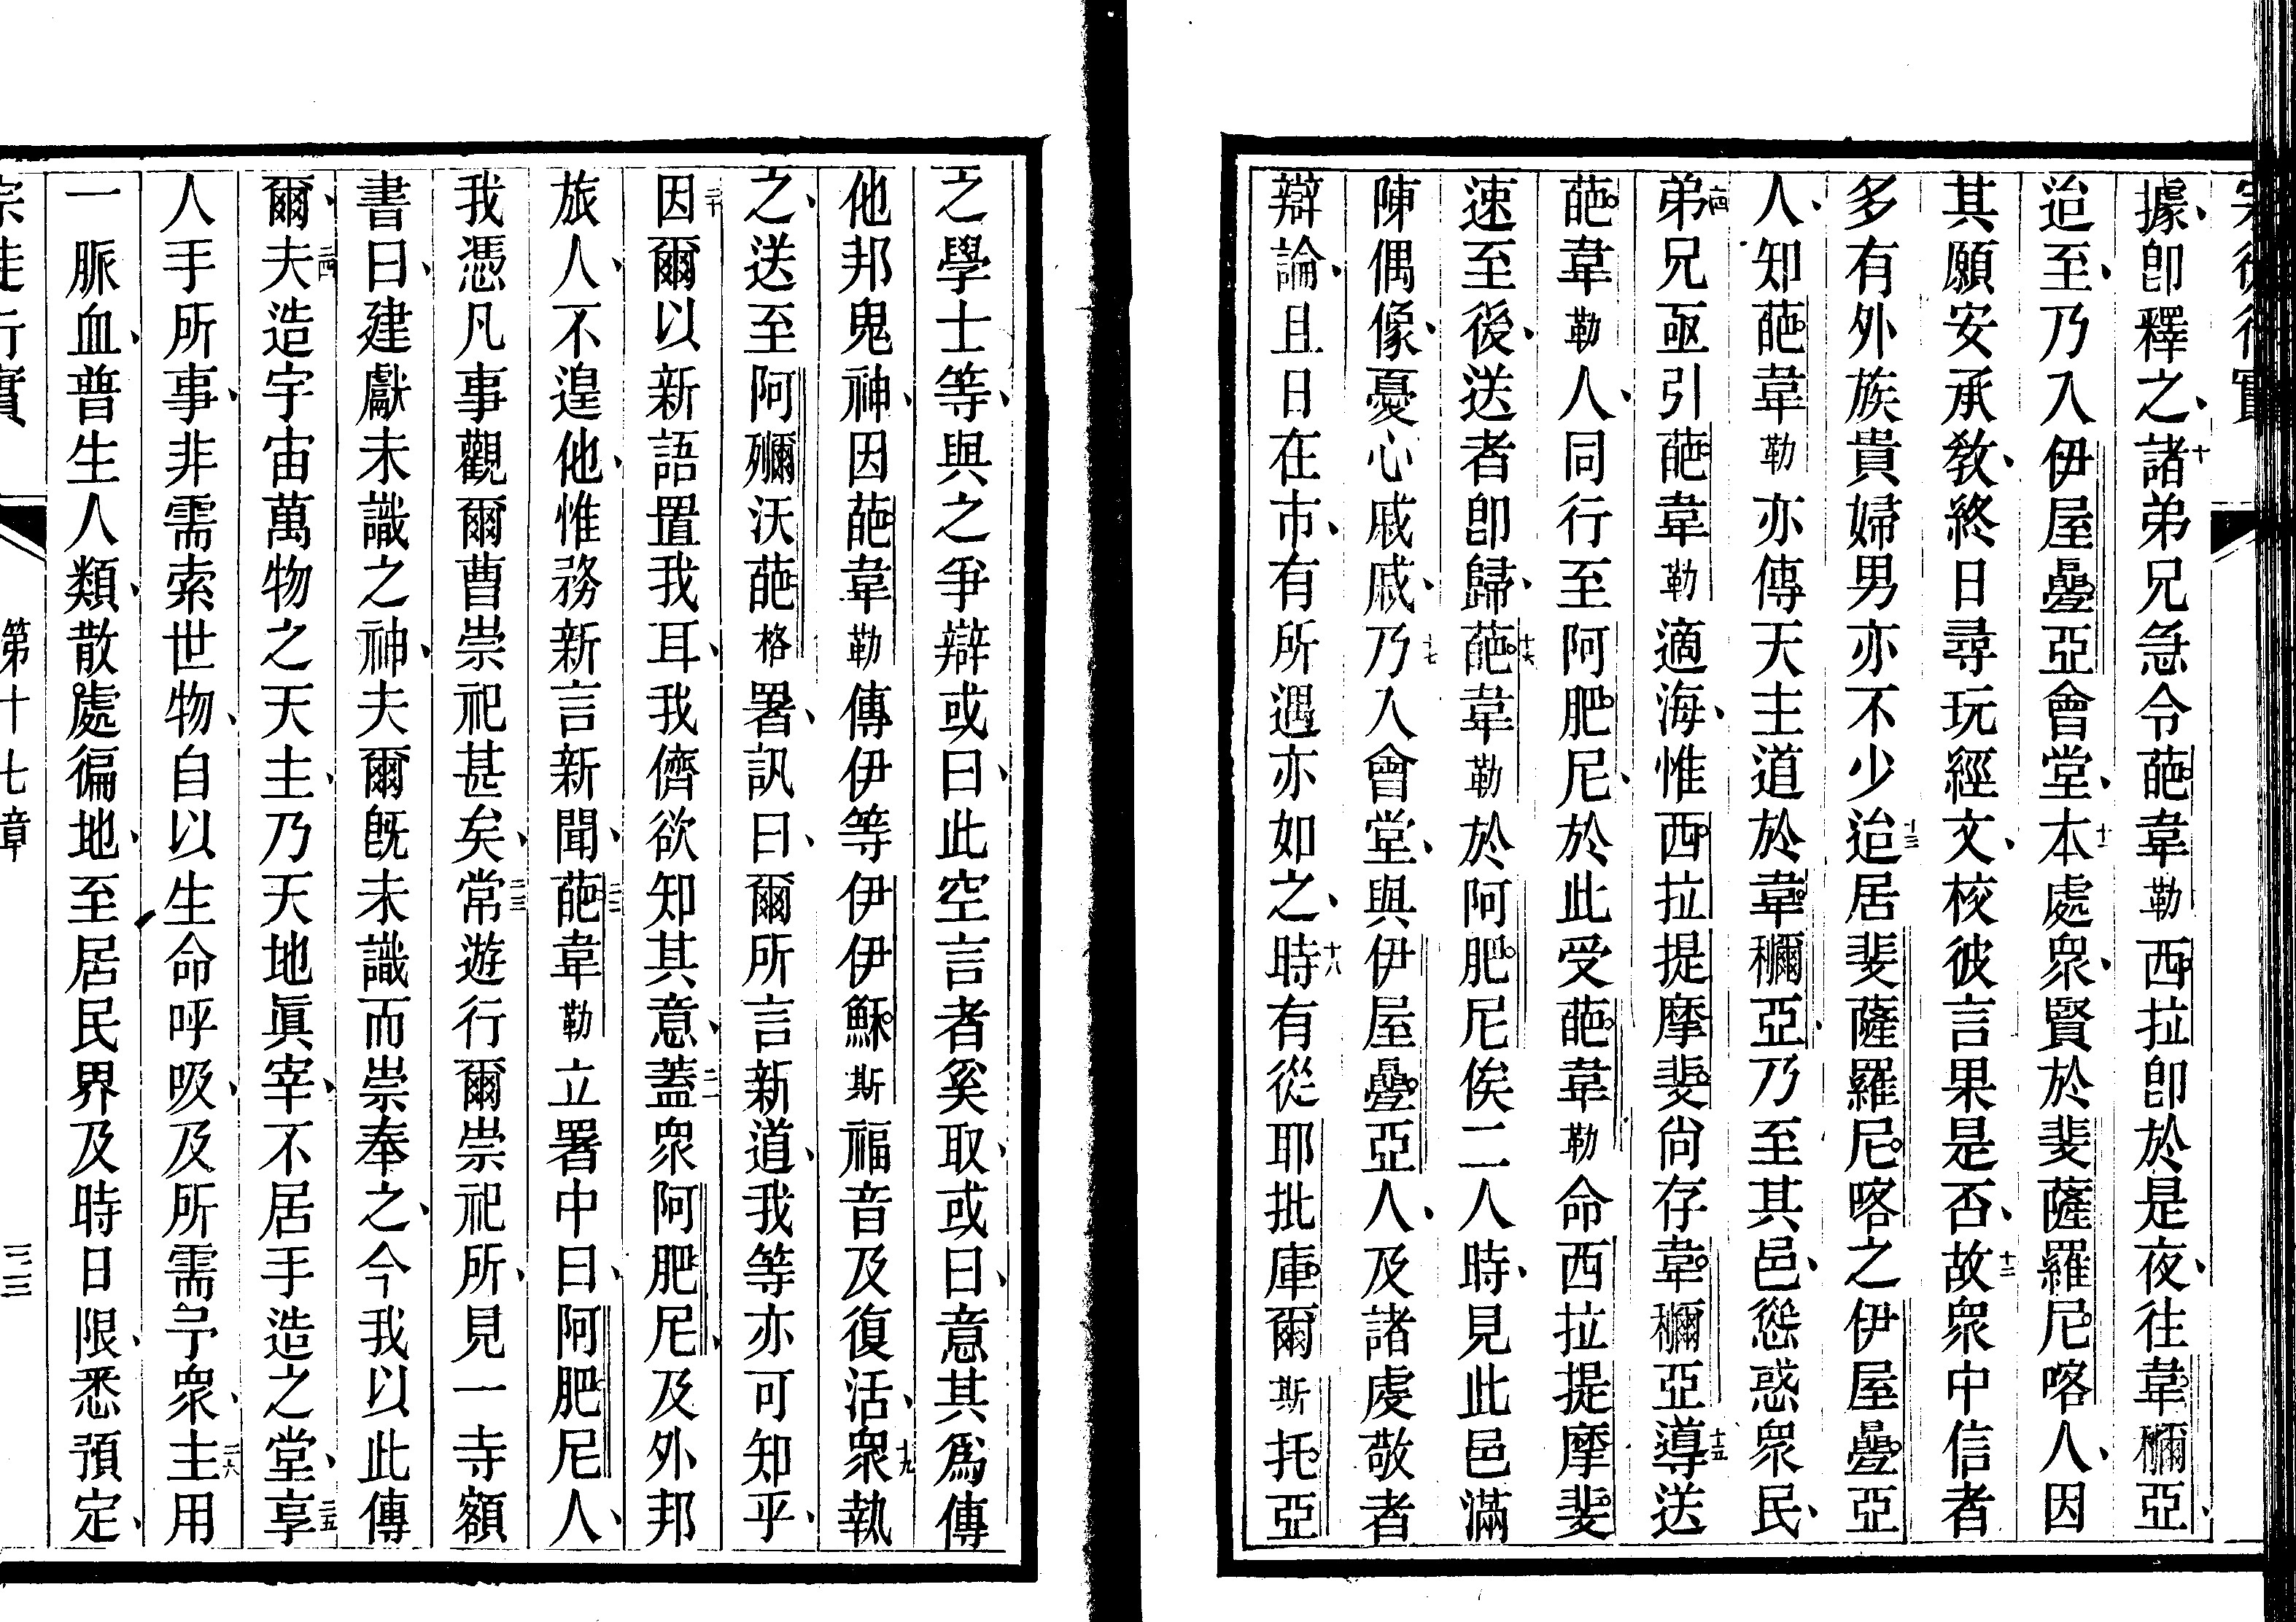 據、卽釋之、十諸弟兄急令葩韋勒西拉卽於是夜、往韋穪亞、
迨至、乃入伊屋疊亞會堂、十一本處衆、賢於斐薩羅尼喀人、因
其願安承敎、終日尋玩經文、校彼言果是否、十二故衆中信者
多有外族貴婦男亦不少十三迨居斐薩羅尼喀之伊屋疊亞
人、知葩韋勒亦傳天主道於韋穪亞、乃至其邑、慫惑衆民、
十四弟兄亟引葩韋勒適海、惟西拉提摩斐尙存韋穪亞十五導送
葩韋勒人、同行至阿肥尼、於此受葩韋勒命西拉提摩斐
速至後、送者卽歸、十六葩韋勒於阿肥尼俟二人時、見此邑滿
陳偶像、憂心戚戚、十七乃入會堂、與伊屋疊亞人、及諸虔敬者
辯論、且日在市、有所遇亦如之、十八時有從耶批庫爾斯托亞
之學士等、與之爭辯或曰、此空言者奚取、或曰、意其爲傳
他邦鬼神、因葩韋勒傳伊等伊伊穌斯福音及復活、十九衆執
之、送至阿穪沃葩格署、訊曰、爾所言新道、我等亦可知乎、
二十因爾以新語置我耳、我儕欲知其意、二一蓋衆阿肥尼、及外邦
旅人、不遑他、惟務新言新聞、二二葩韋勒立署中曰、阿肥尼人、
我憑凡事觀爾曹崇祀甚矣、二三常遊行爾崇祀所、見一寺額
書曰、建獻未識之神、夫爾旣未識而崇奉之、今我以此傳
爾、二四夫造宇宙萬物之天主、乃天地眞宰、不居手造之堂、二五享
人手所事、非需索世物、自以生命呼吸、及所需予衆、二六主用
一脈血、普生人類、散處徧地、至居民界及時日限、悉預定、
第十七章
三三